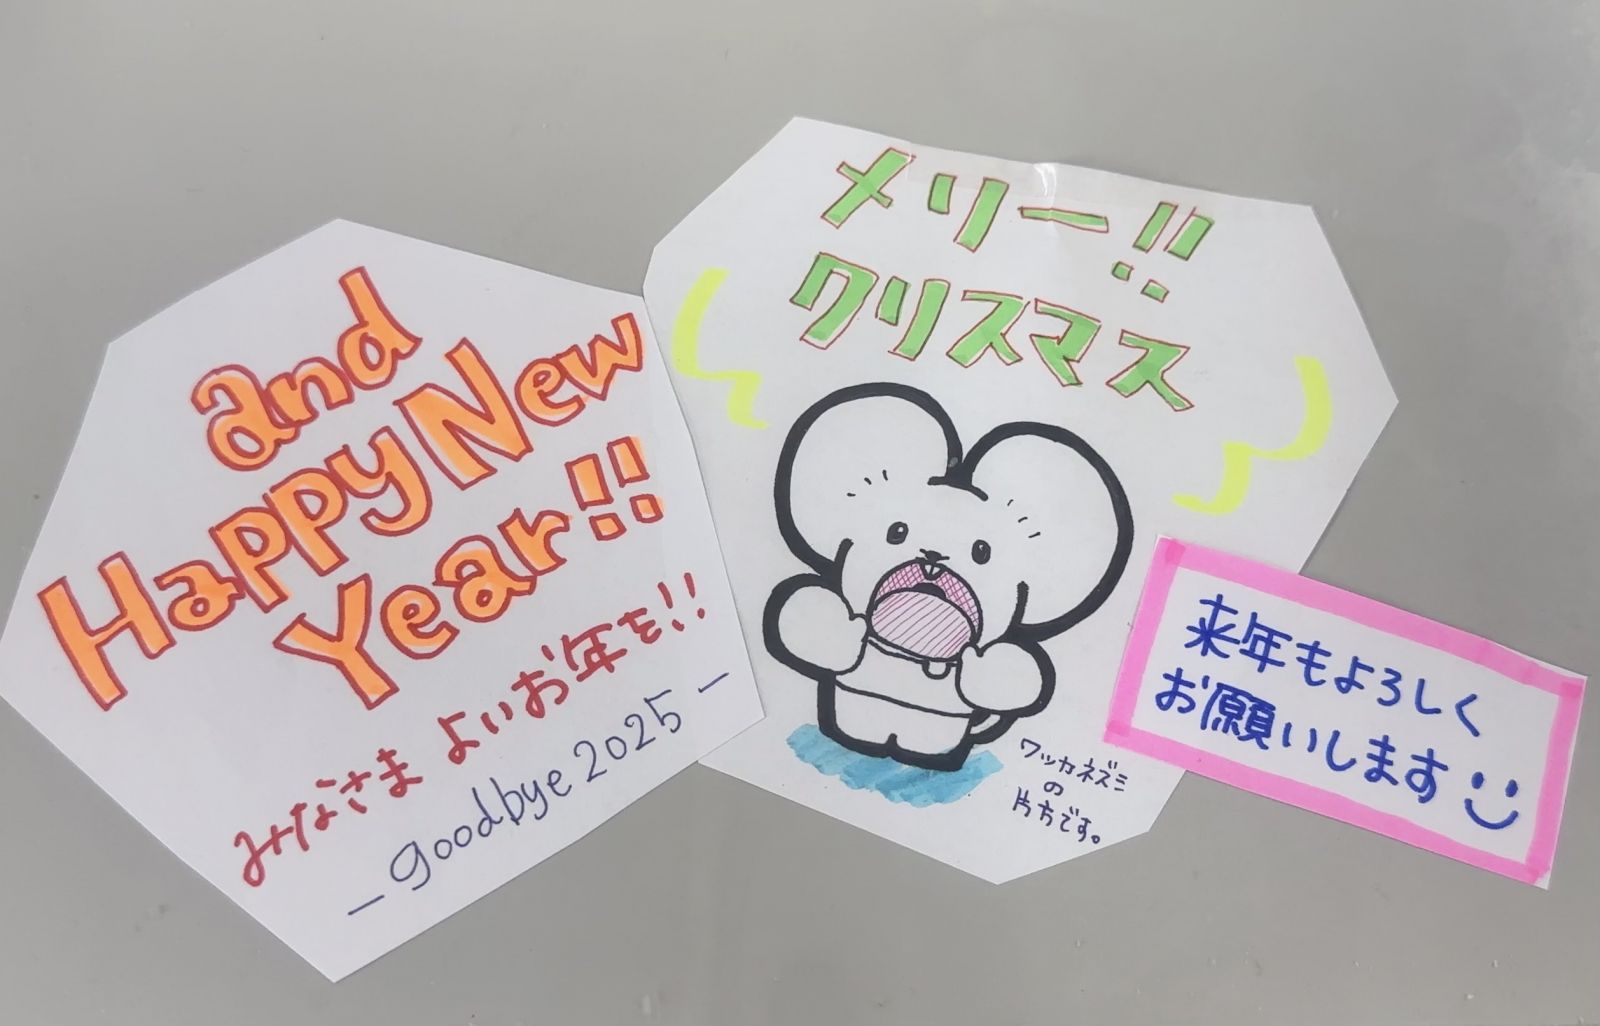 メリー!!
クリスマス
ワッカネズミ
の
片方です。
and
Happy New
Year!!
みなさま よいお年を!!
-goodbye 2025-
来年もよろしく
お願いします